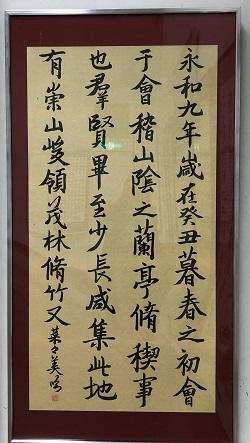 永和九年歲在癸丑暮春之初會
于會稽山陰之蘭亭脩稧事
也羣賢畢至少長咸集此地
有崇山峻領茂林脩竹又